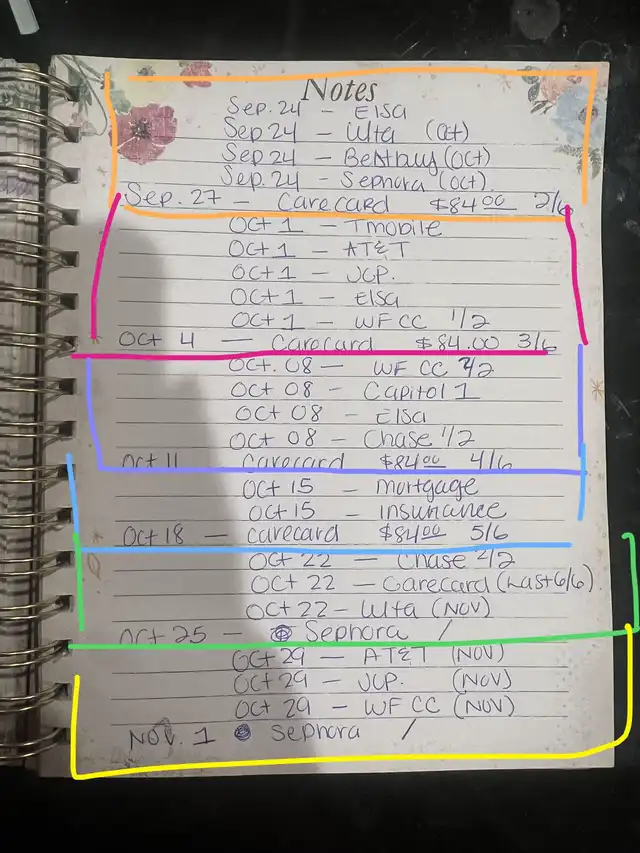 Notes
Sep. 24 - Elsa
Sep 24 - Ulta (Oct)
Sep 24 - Bestbuy (Oct)
Sep. 24 - Sephora (Oct)
Sep. 27 - Carecard $84.00 2/6
Oct 1 - Tmobile
Oct 1 - AT&T
Oct 1 - JCP.
Oct 1 - Elsa
Oct 1 - WF CC 1/2
Oct 4 - Carecard $84.00 3/6
Oct. 08 - WF CC 2/2
Oct 08 - Capitol 1
Oct 08 - Elsa
Oct 08 - Chase 1/2
Oct 11 Carecard $84.00 4/6
Oct 15 - mortgage
Oct 15 - insurance
Oct 18 - carecard $84.00 5/6
Oct 22 - Chase 2/2
Oct 22 - Carecard (Last 6/6)
Oct 22 - Ulta (Nov)
Oct 25 - Sephora /
Oct 29 - AT&T (Nov)
Oct 29 - JCP. (Nov)
Oct 29 - WF CC (Nov)
Nov. 1 Sephora /